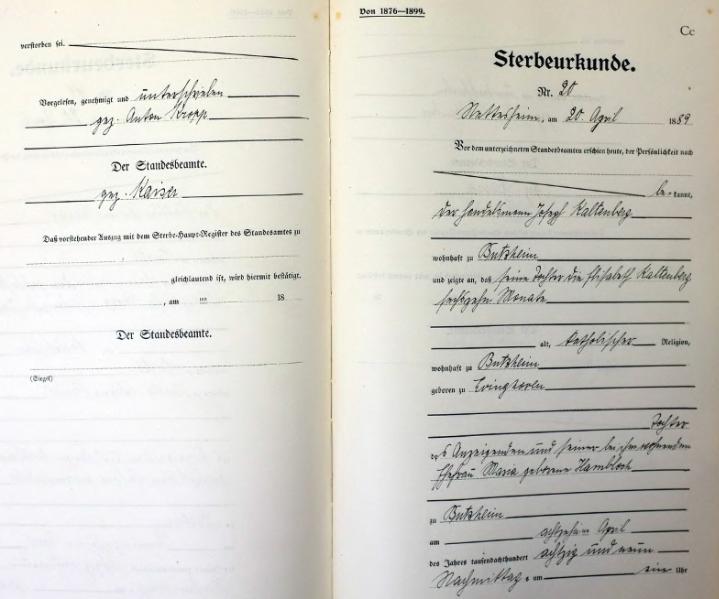 verstorben sei.
Vorgelesen, genehmigt und unterschrieben
gez. Anton Kropp
Der Standesbeamte.
gez. Kaiser
Daß vorstehender Auszug mit dem Sterbe-Haupt-Register des Standesamtes zu
gleichlautend ist, wird hiermit bestätigt.
, am ten 18
Der Standesbeamte.
(Siegel)
Von 1876—1899.
Cc
Sterbeurkunde.
Nr. 20
Nettesheim, am 20. April 1889
Vor dem unterzeichneten Standesbeamten erschien heute, der Persönlichkeit nach
be kannt,
der Handelsmann Joseph Kaltenberg
wohnhaft zu Butzheim
und zeigte an, daß seine Tochter Elisabeth Kaltenberg
sechszehn Monate
alt, katholischer Religion,
wohnhaft zu Butzheim
geboren zu
Tochter
des Anzeigenden und seiner bei ihm wohnenden
Ehefrau Maria geborene Hambloch
zu Butzheim
am achtzehn April
des Jahres tausendachthundert achtzig und neun
Nachmittags um ein Uhr